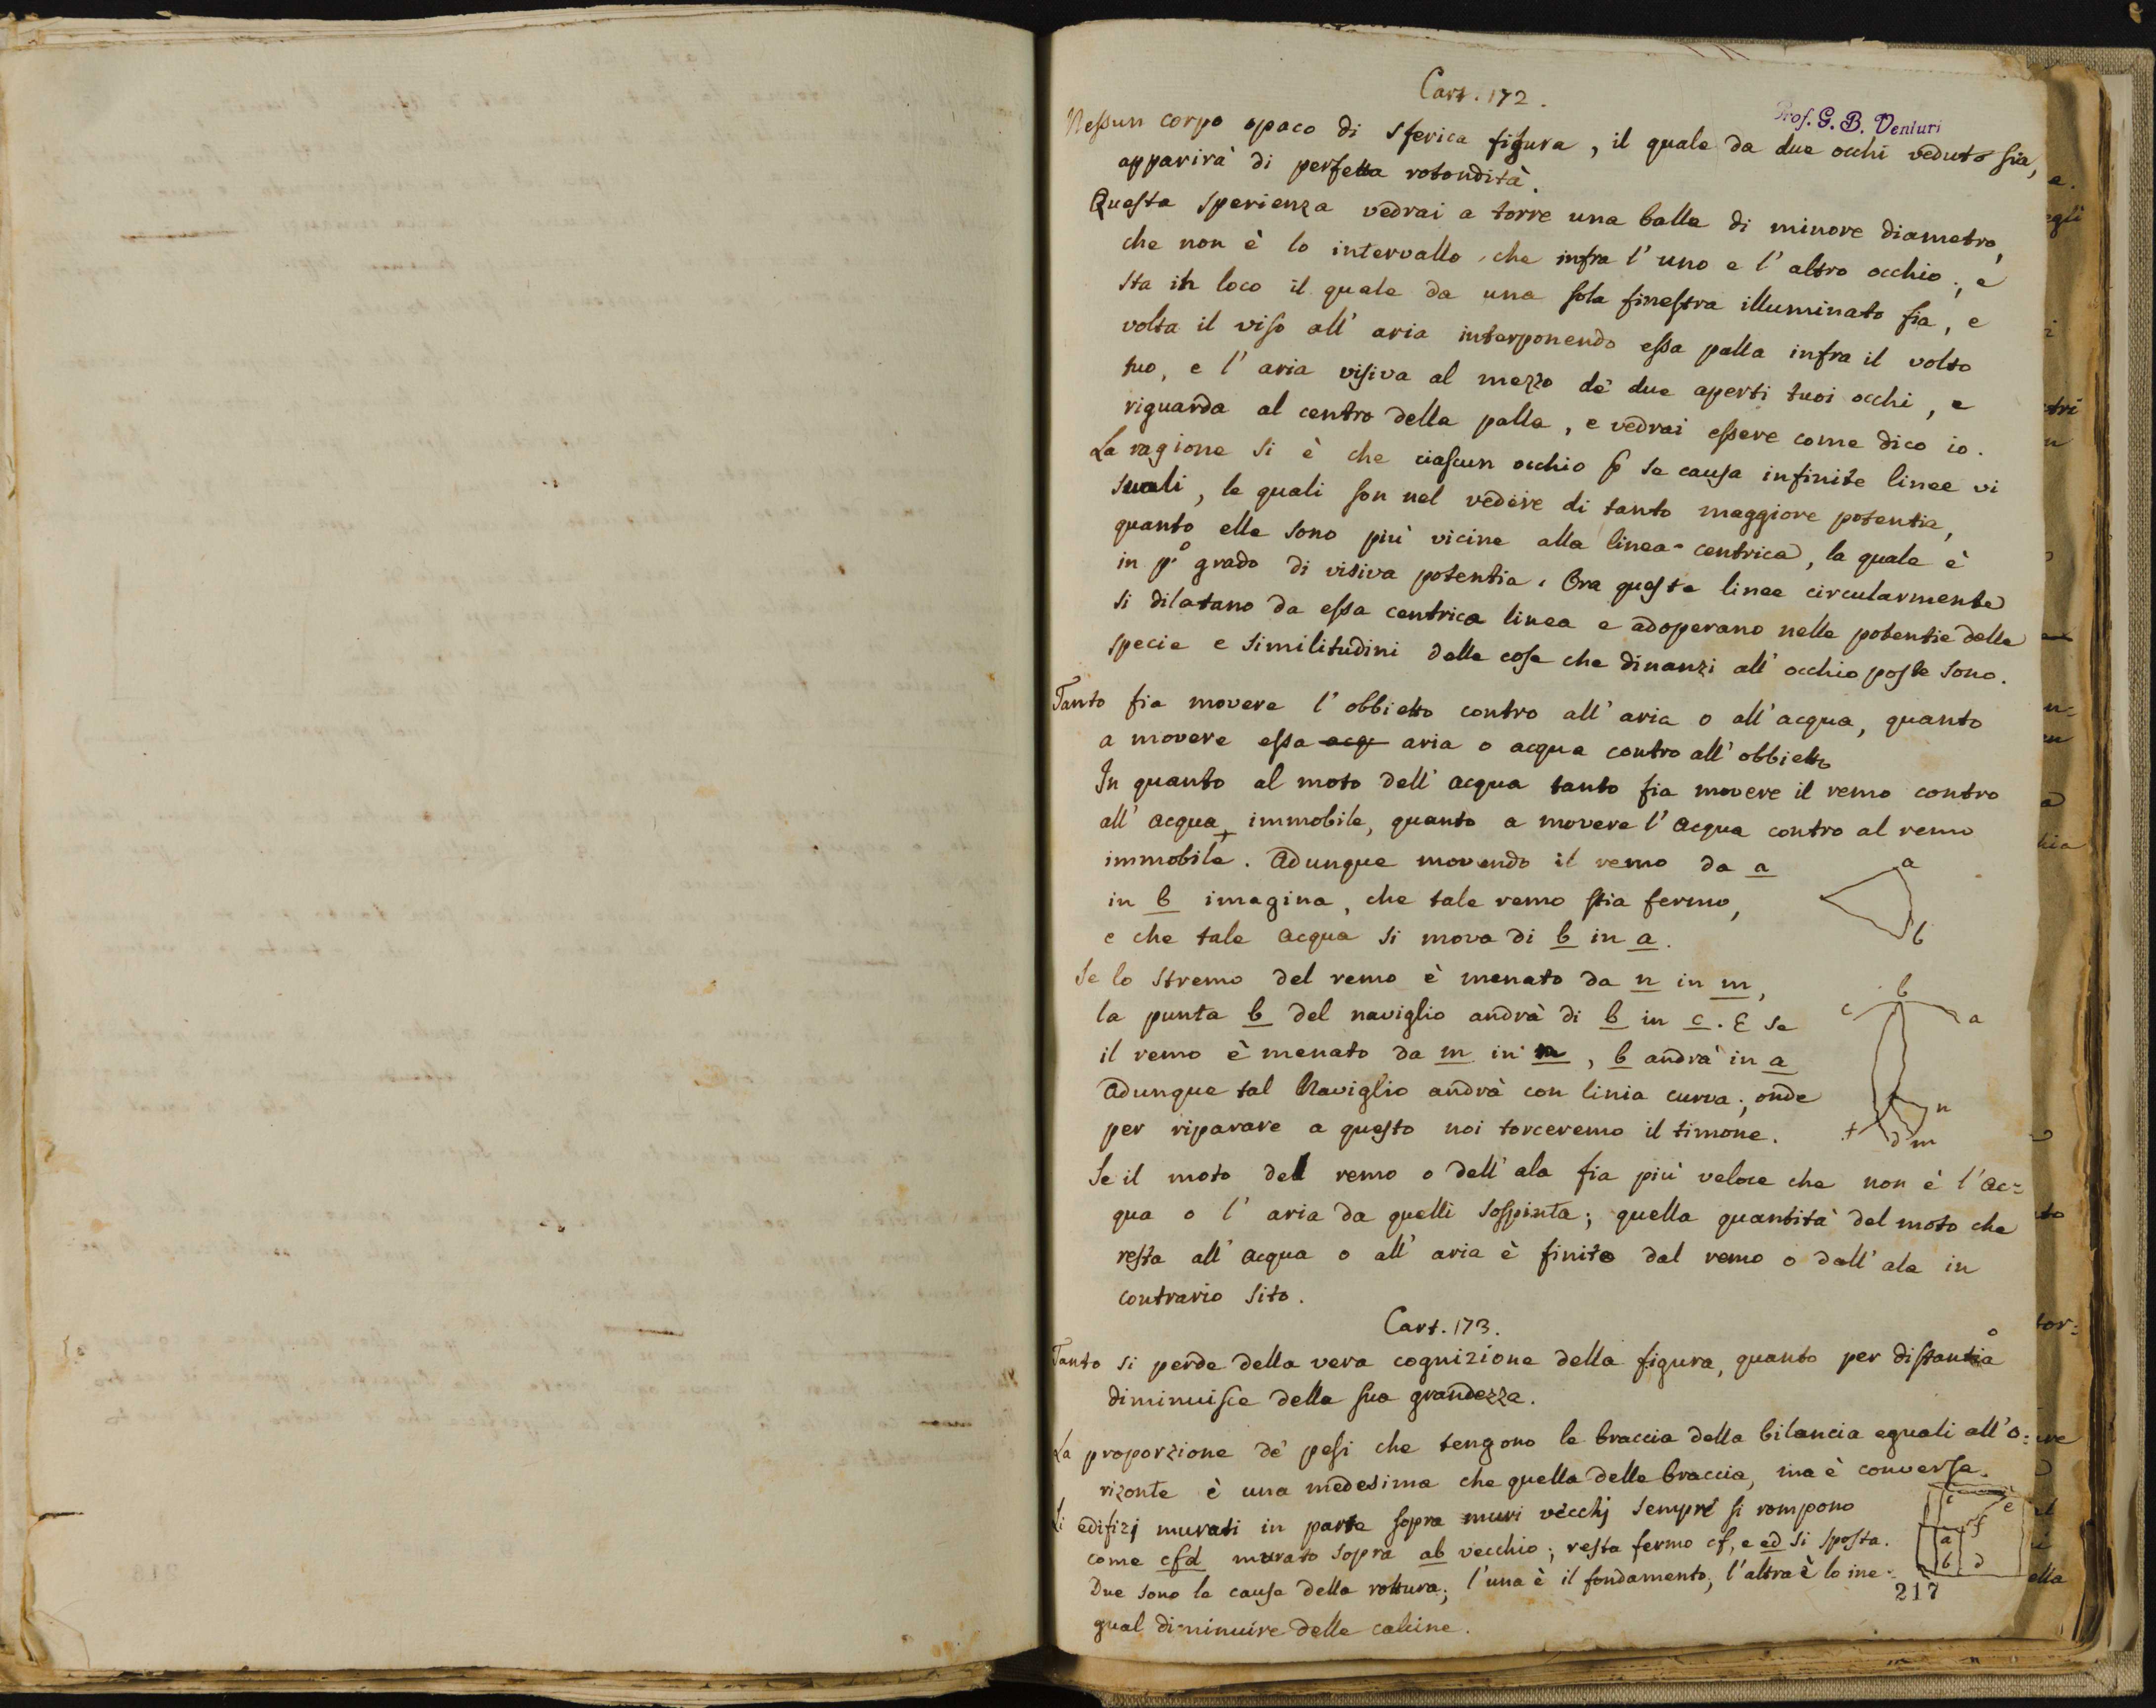 Cart. 172.
Prof. G. B. Venturi
Nessun corpo opaco di sferica figura, il quale da due occhi veduto sia,
apparirà di perfetta rotondità.
Questa sperienza vedrai a torre una balla di minore diametro,
che non è lo intervallo, che infra l' uno e l' altro occhio, e
sta in loco il quale da una sola finestra illuminato fia, e
volta il viso all' aria interponendo essa palla infra il volto
tuo, e l' aria visiva al mezzo de' due aperti tuoi occhi, e
riguarda al centro della palla, e vedrai essere come dico io.
La ragione si è che ciascun occhio p se causa infinite linee vi
suali, le quali son nel vedere di tanto maggiore potentia,
quanto elle sono più vicine alla linea centrica, la quale è
in p.º grado di visiva potentia. Ora queste linee circularmente
si dilatano da essa centrica linea e adoperano nelle potentie delle
specie e similitudini delle cose che dinanzi all' occhio poste sono.
Tanto fia movere l' obbietto contro all' aria o all' acqua, quanto
a movere essa acq aria o acqua contro all' obbietto
In quanto al moto dell' acqua tanto fia movere il remo contro
all' acqua immobile, quanto a movere l' acqua contro al remo
immobile. Adunque movendo il remo da a
in b imagina, che tale remo stia fermo,
e che tale acqua si mova di b in a.
a
b
Se lo stremo del remo è menato da n in m,
la punta b del naviglio andrà di b in c. E se
il remo è menato da m in n, b andrà in a
Adunque tal Naviglio andrà con linia curva; onde
per riparare a questo noi torceremo il timone.
b
c
a
n
f
d
m
Se il moto del remo o dell' ala fia più veloce che non è l' ac=
qua o l' aria da quelli sospinta; quella quantità del moto che
resta all' acqua o all' aria è finito dal remo o dall' ala in
contrario sito.
Cart. 173.
Tanto si perde della vera cognizione della figura, quanto per distantia
diminuisce della sua grandezza.
La proporzione de' pesi che tengono le braccia della bilancia eguali all' o=
rizonte è una medesima che quella delle braccia, ma è conversa.
Li edifizj murati in parte sopra muri vecchj sempre si rompono
come cfd murato sopra ab vecchio; resta fermo cf, e ed si sposta.
Due sono le cause della rottura; l'una è il fondamento, l'altra è lo ine=
gual diminuire delle calcine.
c
e
f
a
b
d
217